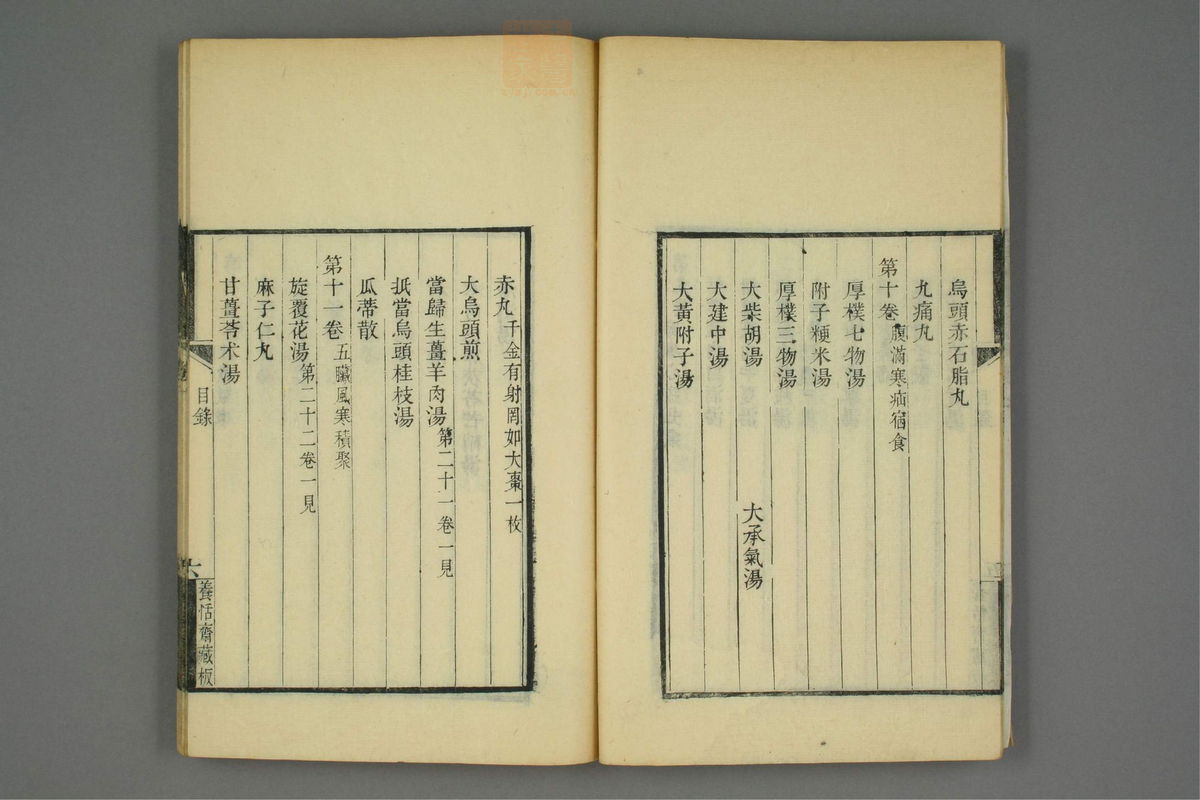 烏頭赤石脂丸
九痛丸
第十卷 腹滿寒疝宿食
厚樸七物湯
附子粳米湯
厚樸三物湯
大柴胡湯 大承氣湯
大建中湯
大黃附子湯
赤丸 千金有射罔如大棗一枚
大烏頭煎
當歸生薑羊肉湯 第二十一卷一見
抵當烏頭桂枝湯
瓜蒂散
第十一卷 五臟風寒積聚
旋覆花湯 第二十二卷一見
麻子仁丸
甘薑苓术湯
目錄
六
養恬齋藏板